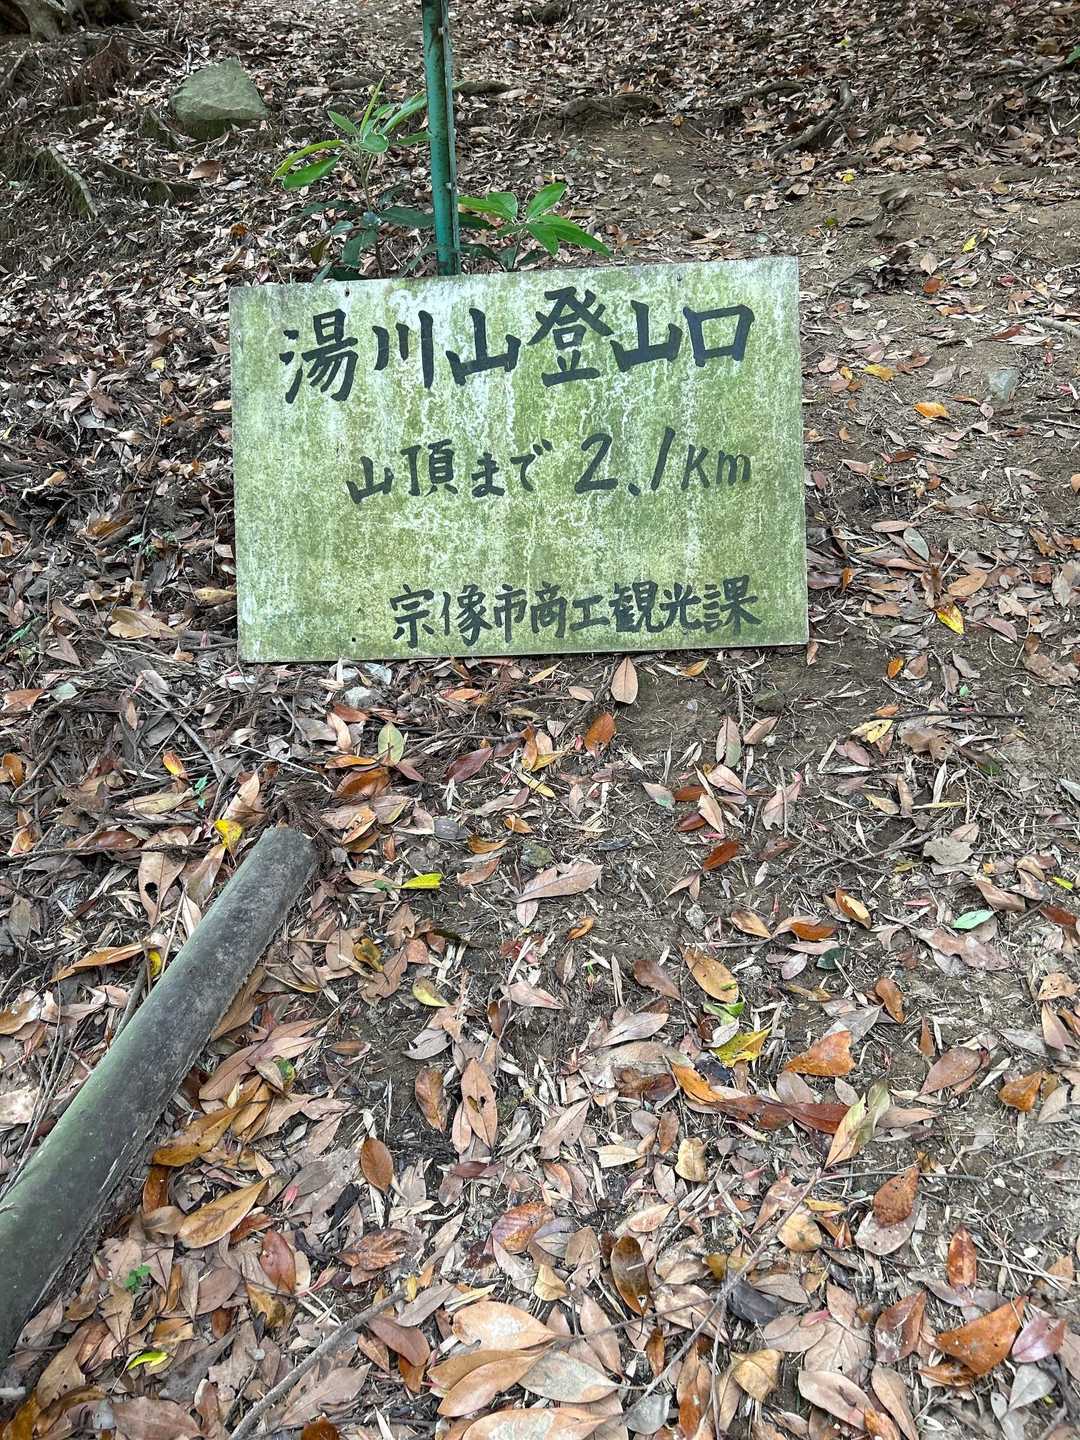 湯川山登山口
山頂まで 2.1Km
宗像市商工観光課